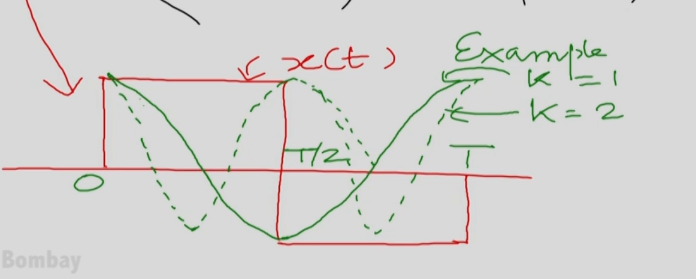 x(t)
Example
K = 1
K = 2
T/2
T
0
Bombay